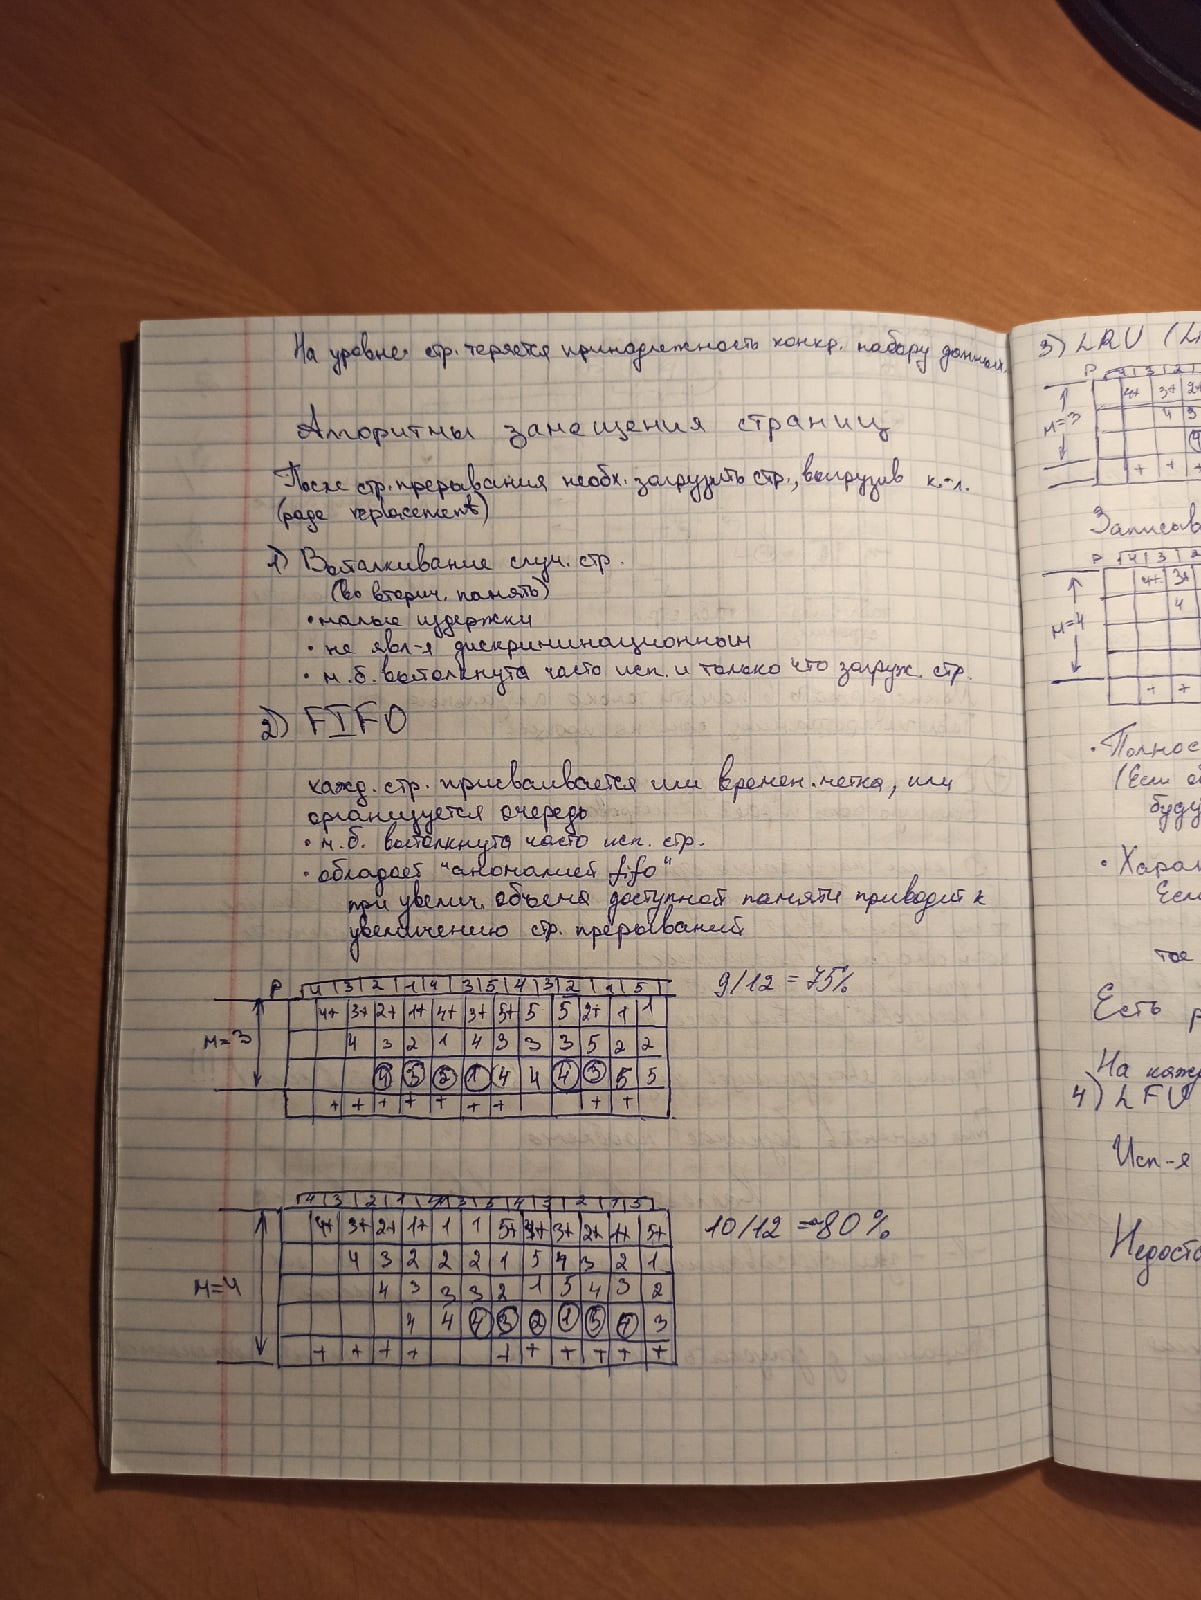 На уровне стр. теряется принадлежность конкр. набору данных.
Алгоритмы замещения страниц
После стр. прерывания необх. загрузить стр., выгрузив к.-л.
(page replacement)
1) Выталкивание случ. стр.
(во вторич. память)
• малые издержки
• не явл-я дискриминационным
• м.б. вытолкнута часто исп. и только что загруж. стр.
2) FIFO
кажд. стр. присваивается или времен. метка, или
организуется очередь
• м.б. вытолкнута часто исп. стр.
• обладает "аномалией fifo"
при увелич. объема доступной памяти приводит к
увеличению стр. прерываний
P 4 3 2 1 4 3 5 4 3 2 1 5 9/12 = 75%
4+ 3+ 2+ 1+ 4+ 3+ 5+ 5 5 2+ 1 1
M=3 4 3 2 1 4 3 3 3 5 2 2
4 3 2 1 4 4 4 3 5 5
+ + + + + + + + +
4 3 2 1 4 3 5 4 3 2 1 5
4+ 3+ 2+ 1+ 1 1 5+ 4+ 3+ 2+ 1+ 5+ 10/12 = ~80%
4 3 2 2 2 1 5 4 3 2 1
M=4 4 3 3 3 2 1 5 4 3 2
4 4 4 3 2 1 5 4 3
+ + + + + + + + + +
3) LRU
P 4 3 2
4+ 3+ 2+
M=3 4 3
4
+ + +
P 4 3 2
4+ 3+
M=4 4
+ +
(Если
буду
• Харак
Если
Есть
На кажд
4) LFU
Исп-я
Недоста